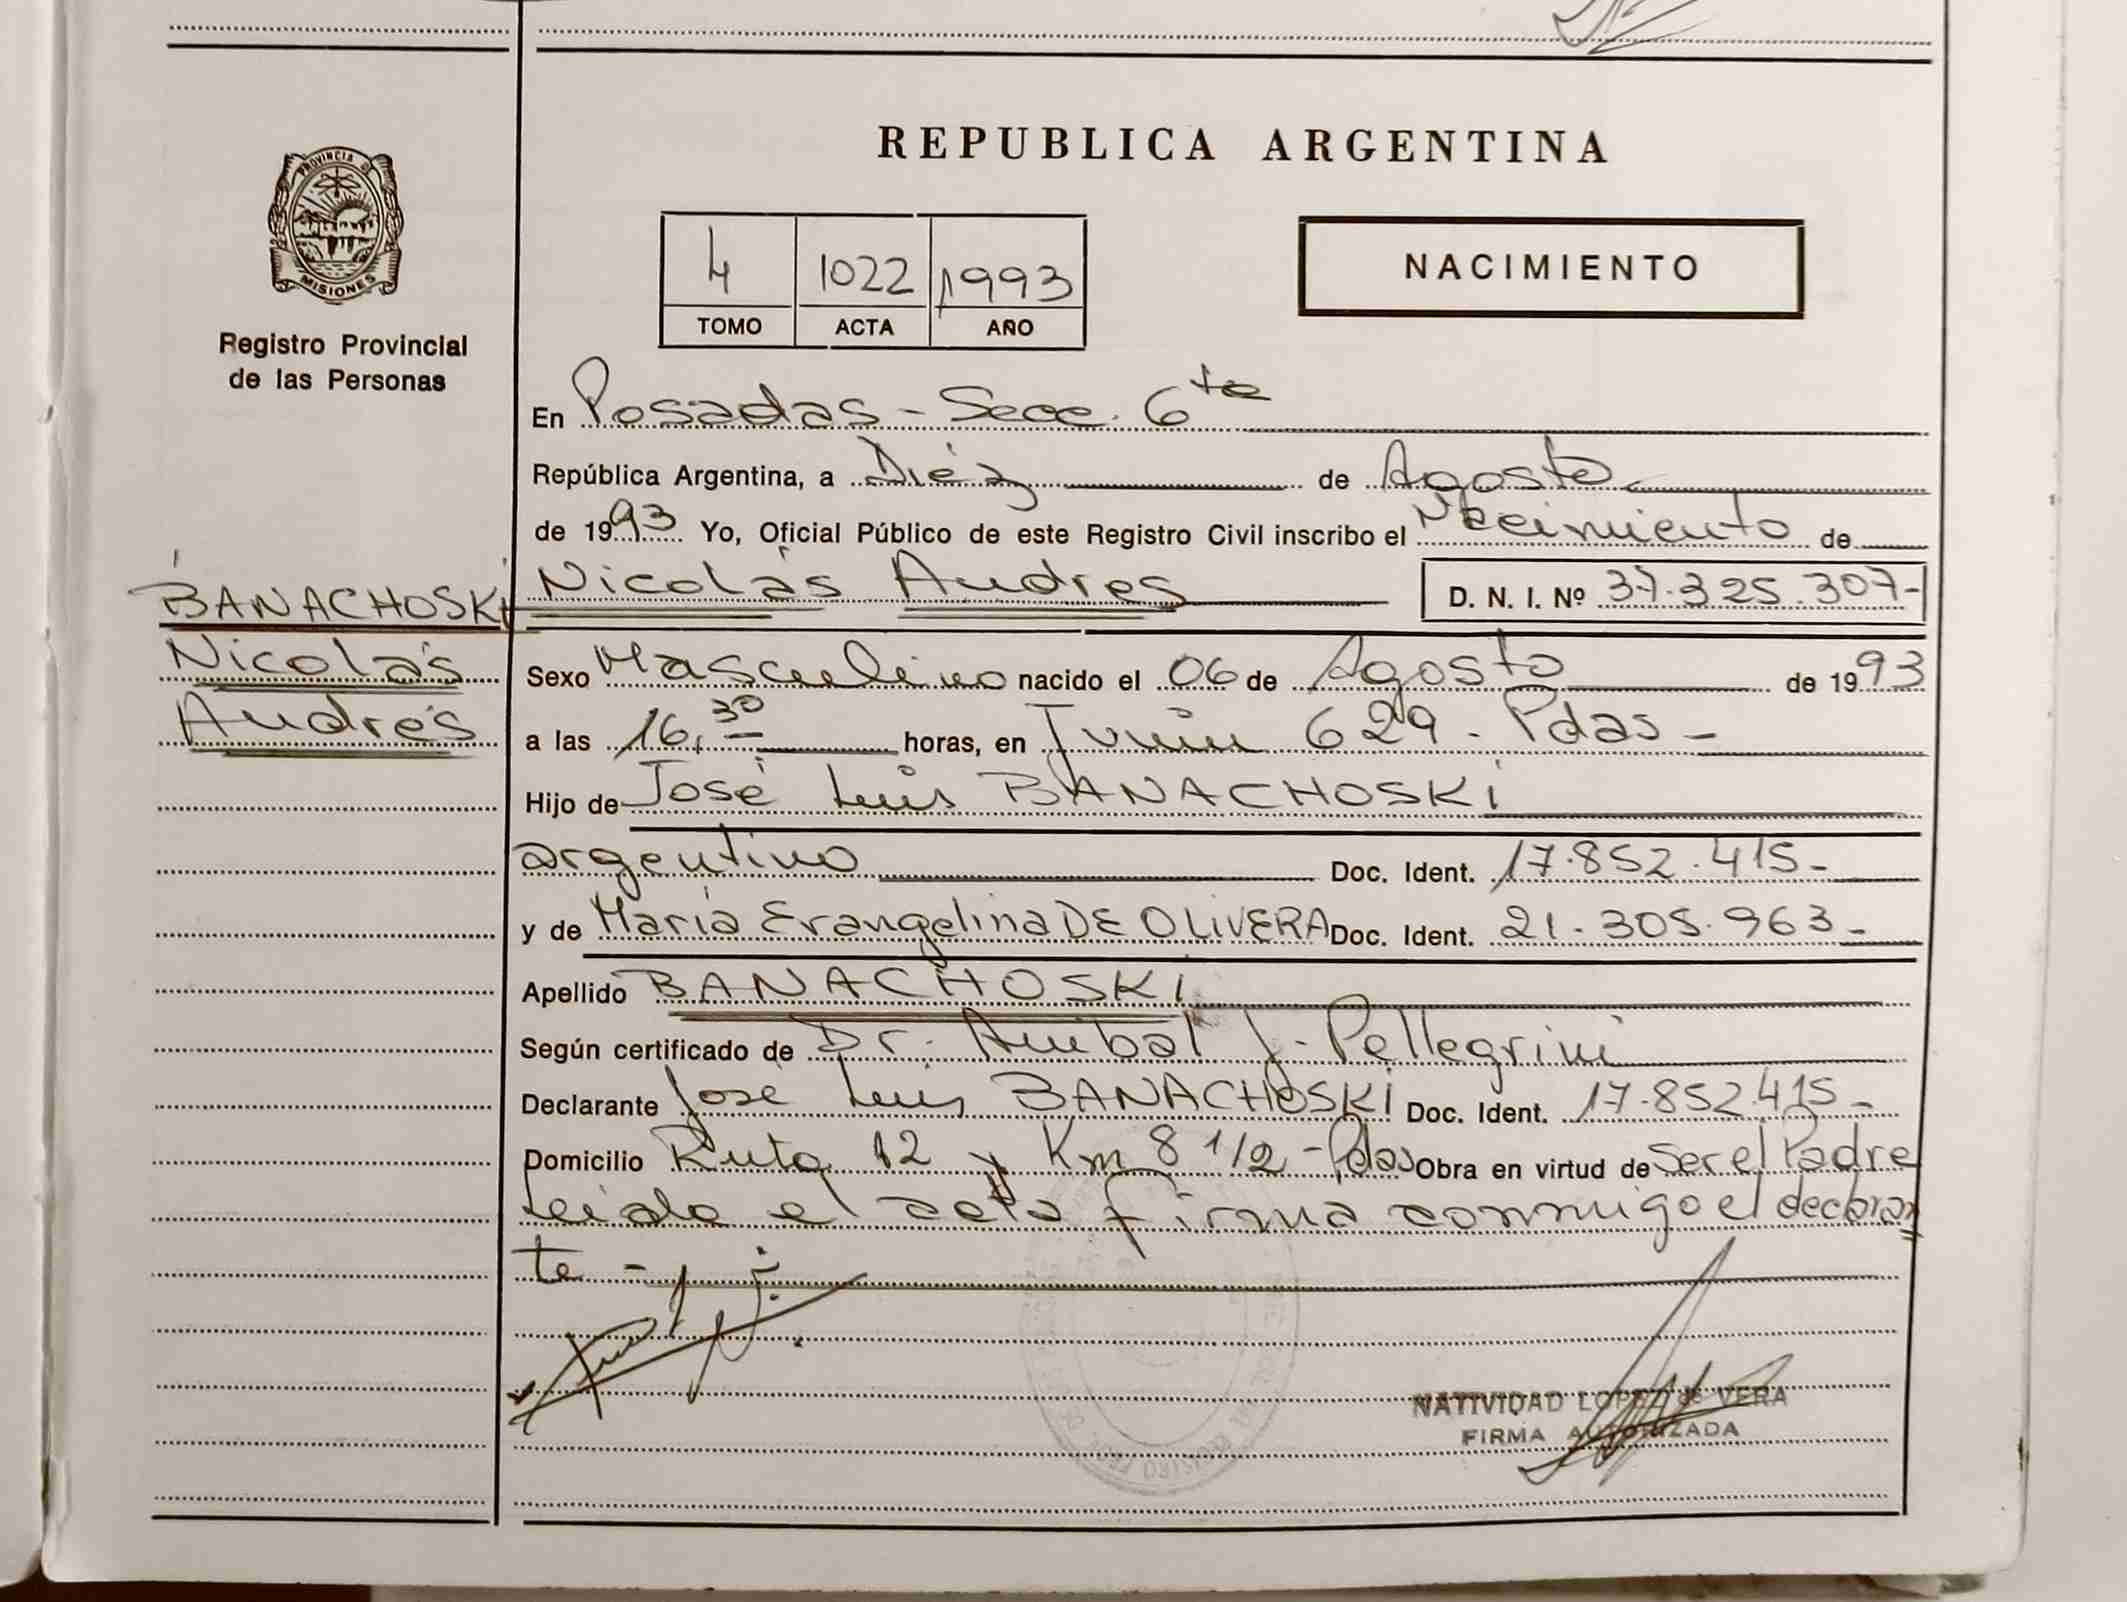 REPUBLICA ARGENTINA
PROVINCIA D
MISIONES
Registro Provincial
de las Personas
4 1022 1993
TOMO ACTA AÑO
NACIMIENTO
En Posadas - Secc. 6ta
República Argentina, a Diéz de Agosto
de 1993 Yo, Oficial Público de este Registro Civil inscribo el Nacimiento de
BANACHOSKI
Nicolás
Andrés
Nicolás Andres D. N. I. Nº 37.325.307-
Sexo Masculino nacido el 06 de Agosto de 1993
a las 16,30 horas, en Junin 629 - Pdas -
Hijo de José Luis BANACHOSKI
argentino Doc. Ident. 17.852.415-
y de María Evangelina DE OLIVERA Doc. Ident. 21.305.963-
Apellido BANACHOSKI
Según certificado de Dr. Anibal J. Pellegrini
Declarante José Luis BANACHOSKI Doc. Ident. 17.852.415-
Domicilio Ruta 12 y Km 8 1/2 - Pdas Obra en virtud de Ser el Padre
Leida el acta firma conmigo el declaran
te -
NATIVIDAD LOPEZ de VERA
FIRMA AUTORIZADA